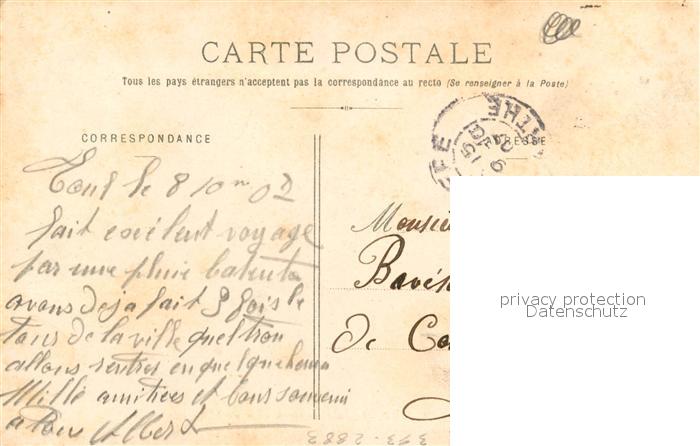 CARTE POSTALE
Tous les pays étrangers n'acceptent pas la correspondance au recto (Se renseigner à la Poste)
CORRESPONDANCE
ADRESSE
Toul le 8 10
fait exélent voyage
par une pluie batente
avons deja fait 3 fois le
tour de la ville
allons rentrer en quelque heure
Mille amitiers et bons
a tous Albert
Monsie
de Co
privacy protection
Datenschutz
353-2883